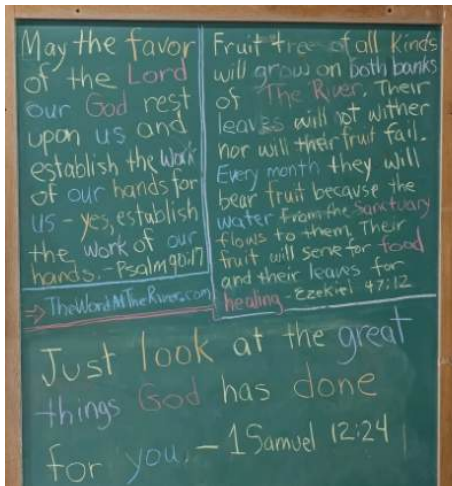 May the favor
of the Lord
our God rest
upon us and
establish the work
of our hands for
us - yes, establish
the work of our
hands. - Psalm 90:17
→ TheWordAtTheRiver.com
Fruit tree of all Kinds
will grow on both banks
of The River. Their
leaves will not wither
nor will their fruit fail.
Every month they will
bear fruit because the
water from the Sanctuary
flows to them. Their
fruit will serve for food
and their leaves for
healing - Ezekiel 47:12
Just look at the great
things God has done
for you. - 1 Samuel 12:24